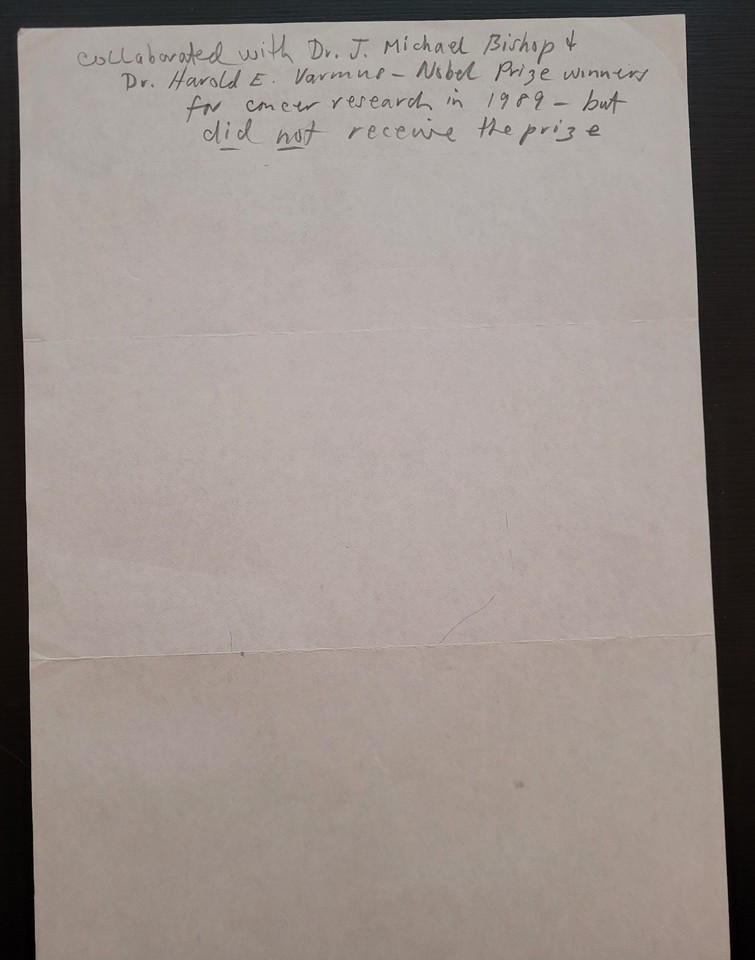 collaborated with Dr. J. Michael Bishop &
Dr. Harold E. Varmus - Nobel Prize winners
for cancer research in 1989 - but
did not receive the prize